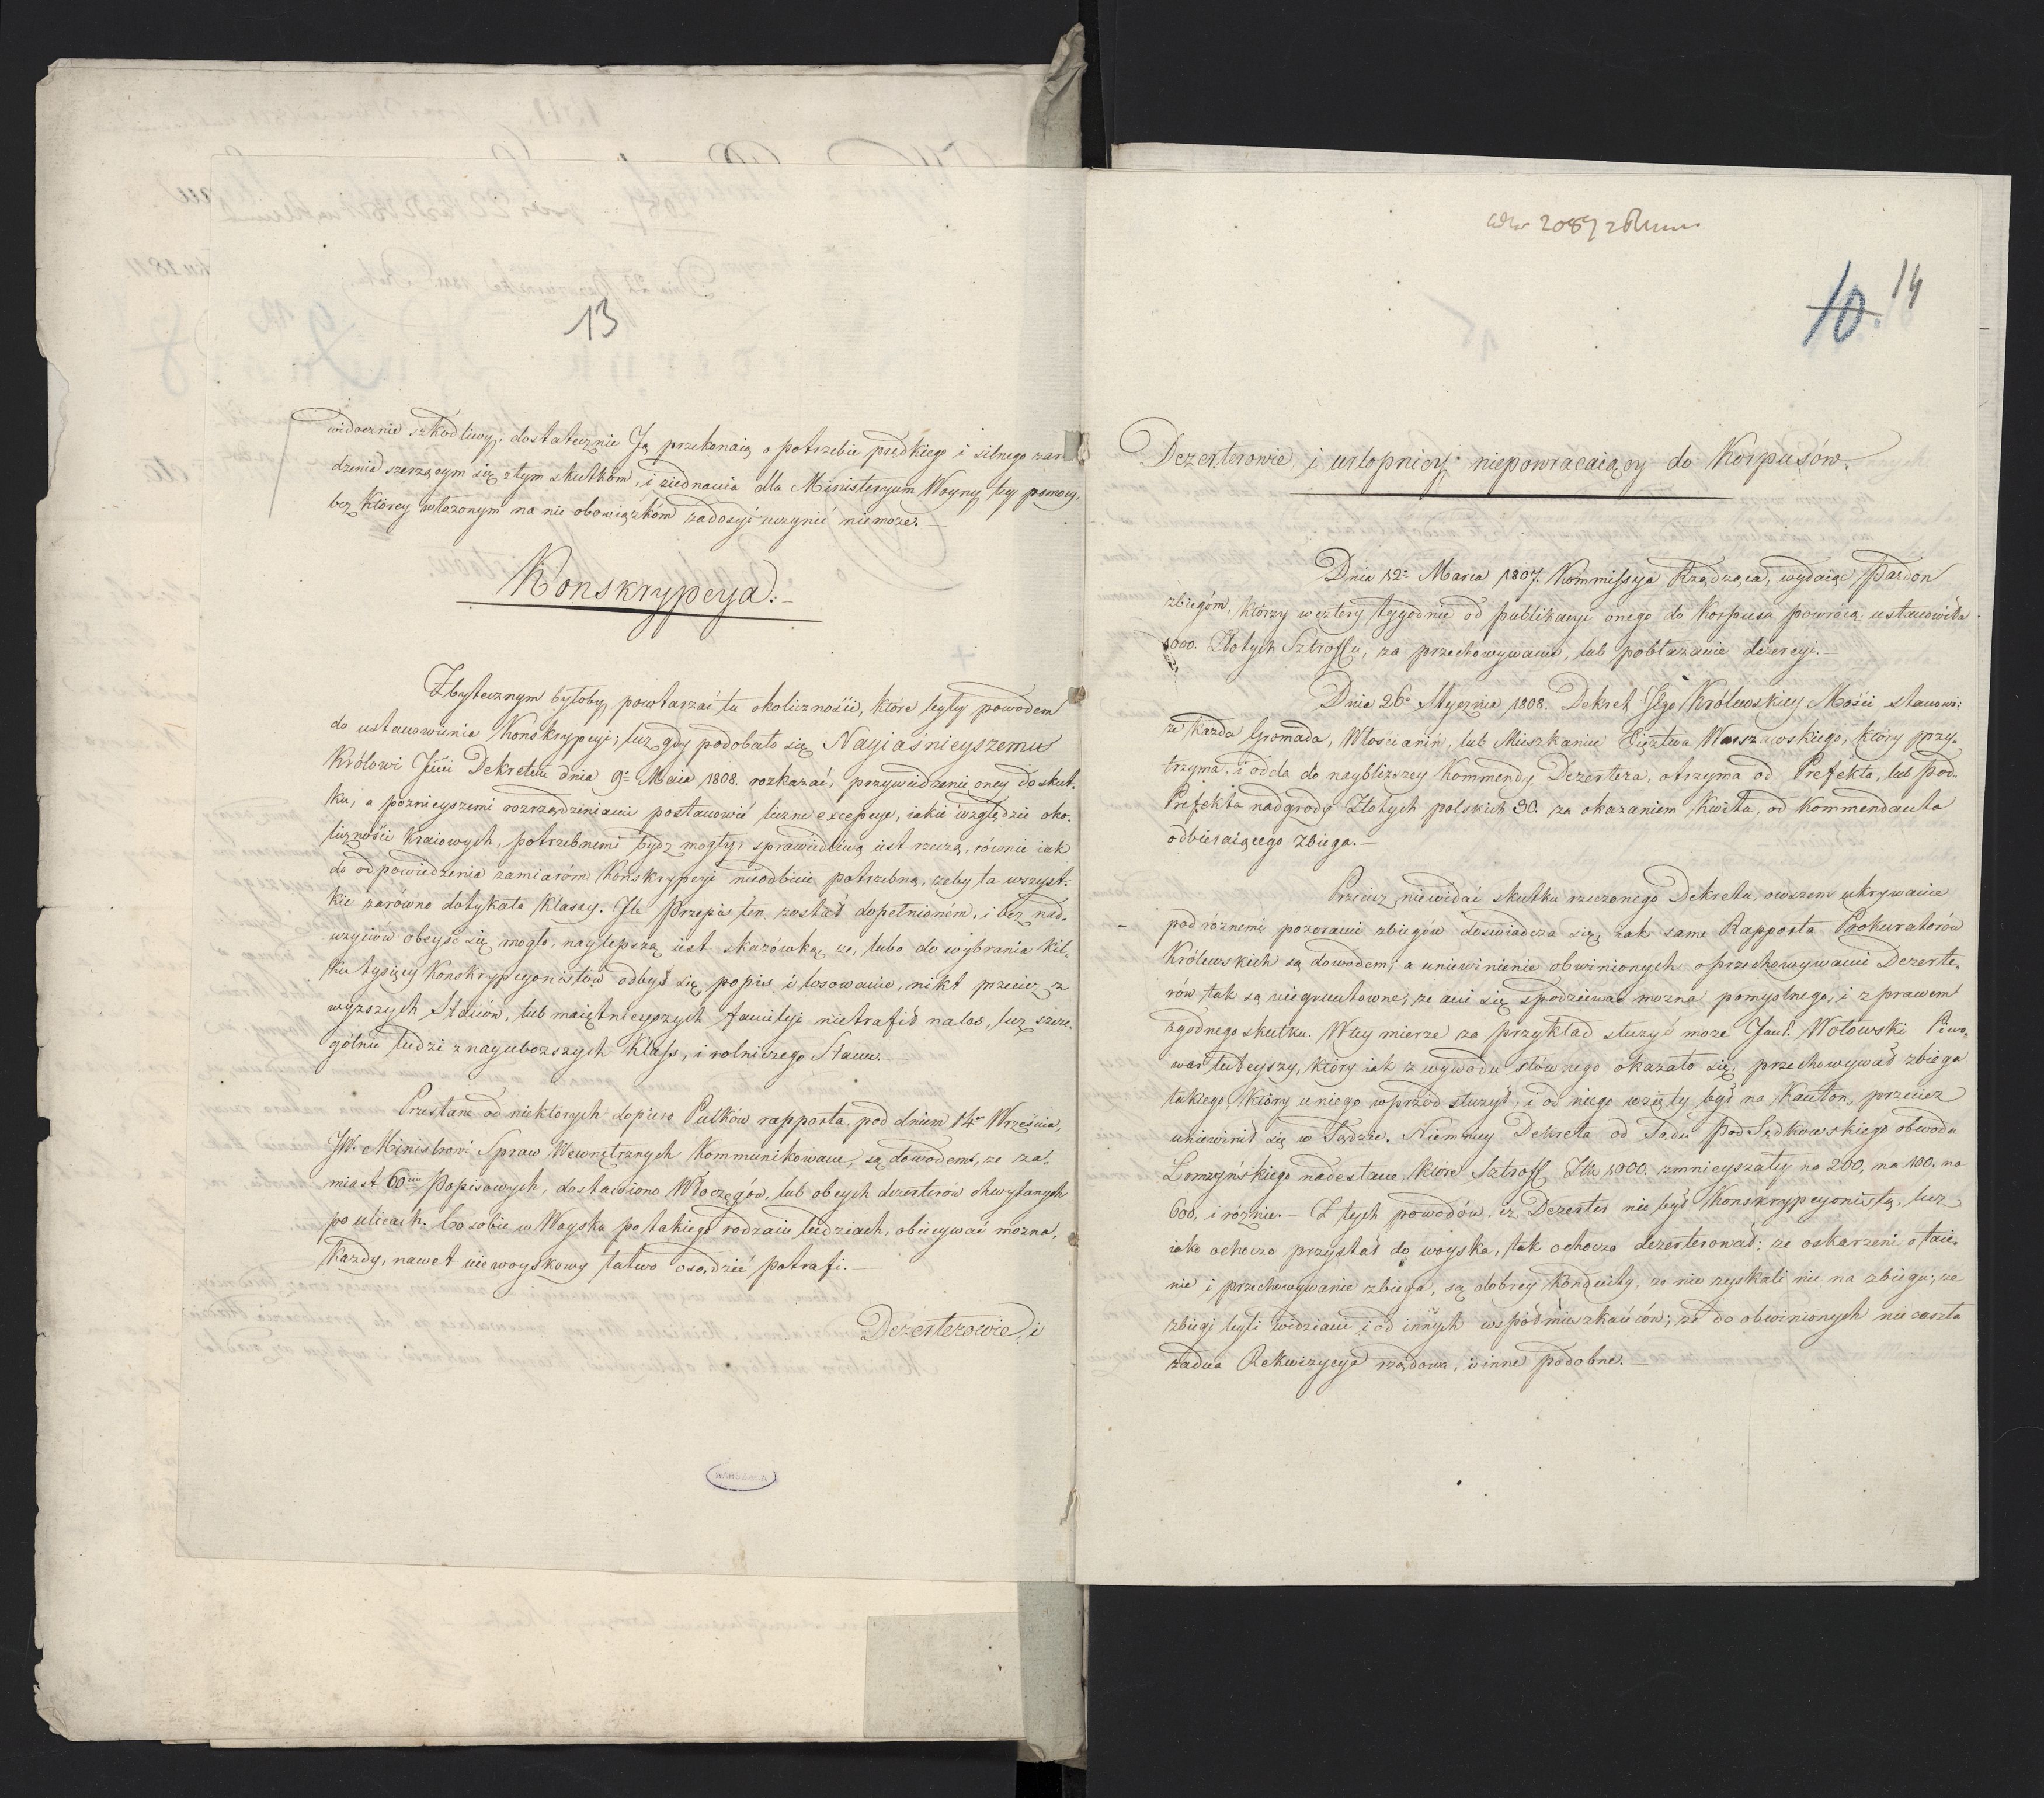 13
widocznie szkodliwy; dostatecznie Ją przekonaią o potrzebie prędkiego i silnego zara
dzenia szerzącym się złym skutkom, i ziednania dla Ministeryum Woyny tey pomocy,
bez którey włożonym na nie obowiązkóm zadosyć uczynić niemoże.—
Konskrypcya.—
Zbytecznym byłoby powtarzać tu okoliczności, które były powodem
do ustanowienia Konskrypcyi; lecz gdy podobało się Nayiaśnieyszemu
Królowi Jmci Dekretem dnia 9º Maia 1808. rozkazać, przywiedzenie oney do skut-
ku, a poznieyszemi rozrządzeniami postanowić liczne excepcye, iakie względzie oko-
liczności kraiowych, potrzebnemi bydz mogły; sprawiedliwą iest rzeczą, równie iak
do odpowiedzenia zamiarom Konskrypcyi nieodbicie potrzebną, żeby ta wszyst-
kie zarówno dotykała klassy. Ile Przepis ten został dopełnioném, i bez nad-
użyciów obeyść się mogło, naylepszą iest skazówką że, lubo do wybrania kil-
ku tysięcy Konskrypcyonistów odbył się popis i losowanie, nikt przecież z
wyższych Stanów, lub maiętnieyszych familyi nietrafił na los, lecz szcze-
gólnie ludzi z nayuboższych Klass, i rolniczego Stanu.—
Przesłane od niektórych dopiero Pułków rapporta, pod dniem 14º Września,
JW. Ministrowi Spraw Wewnętrznych Kommunikowane, są dowodem, że za-
miast 60ciu Popisowych, dostawiono Włoczęgów, lub obcych dezerterów chwytanych
po ulicach. Co sobie w Woysku po takiego rodzaiu ludziach, obiecywać można,
każdy, nawet niewoyskowy łatwo osądzić potrafi.—
Dezerterowie, i
WARSZAWA
14
10.
Dezerterowie, i urlopnicy niepowracaiący do Korpusów.
Dnia 12º Marca 1807. Kommissya Rządząca, wydaiąc Pardon
zbiegóm, którzy w cztery tygodnie od publikacyi onego do Korpusu powrócą, ustanowiła
1000. Złotych Sztroffu, za przechowywanie, lub pobłażanie dezercyi.—
Dnia 26º Stycznia 1808. Dekret Jego Królewskiey Mości stanowi;
że każda Gromada, Włościanin, lub Mieszkaniec Xięztwa Warszawskiego, który przy-
trzyma, i odda do naybliższey Kommendy Dezertera, otrzyma od Prefekta, lub Pod-
Prefekta nadgrodę Złotych polskich 30. za okazaniem Kwitu, od kommendanta
odbieraiącego zbiega.—
Przecież niewidać skutku rzeczonego Dekretu, owszem ukrywanie
pod różnemi pozorami zbiegów doświadcza się, iak same Rapporta Prokuratorów
Królewskich są dowodem; a uniewinienie obwinionych o przechowywanie Dezerte-
rów tak są niegruntowne, że ani się spodziewać można pomyślnego, i z prawem
zgodnego skutku. W tey mierze za przykład służyć może Jan. Wołowski Piwo-
war tuteyszy, który iak z wywodu słównego okazało się, przechowywał zbiega
takiego, który u niego wprzód służył, i od niego wzięty był na Kanton, przecież
uniewinił się w Sądzie. Niemniey Dekreta od Sądu PodSędkowskiego obwodu
Łomżyńskiego nadesłane, które Sztroff Złp. 1000. zmnieyszały na 200, na 100, na
600, i różnie.— Z tych powodów, iż Dezerter nie był Konskrypcyonistą, lecz
iako ochoczo przystał do woyska, tak ochoczo dezerterował; że oskarżeni o taie-
nie i przechowywanie zbiega, są dobrey konduity, że nie zyskali nic na zbiegu; że
zbiegi byli widziani i od innych współmieszkańców; że do obwinionych nie zaszła
żadna Rekwizycya rządowa, i inne podobne.—